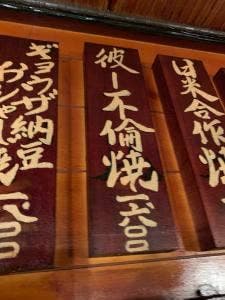 日米合作焼
彼一不倫焼
一六〇〇
ギョウザ納豆
おかしゃれ焼
一六〇〇